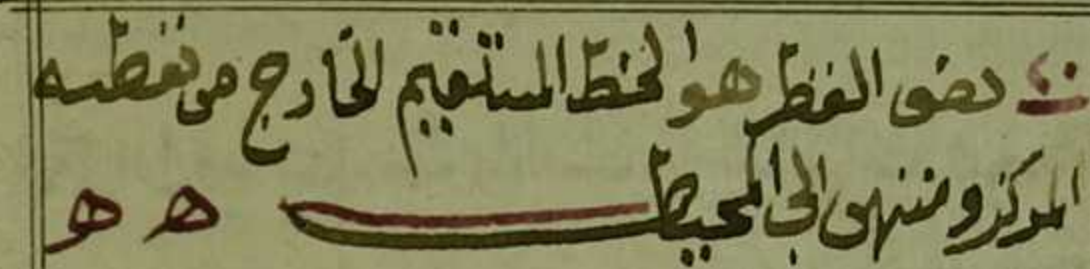 نصف القطر هو الخط المستقيم الخارج من نقطة
المركز ومنتهى الى المحيط ه ه